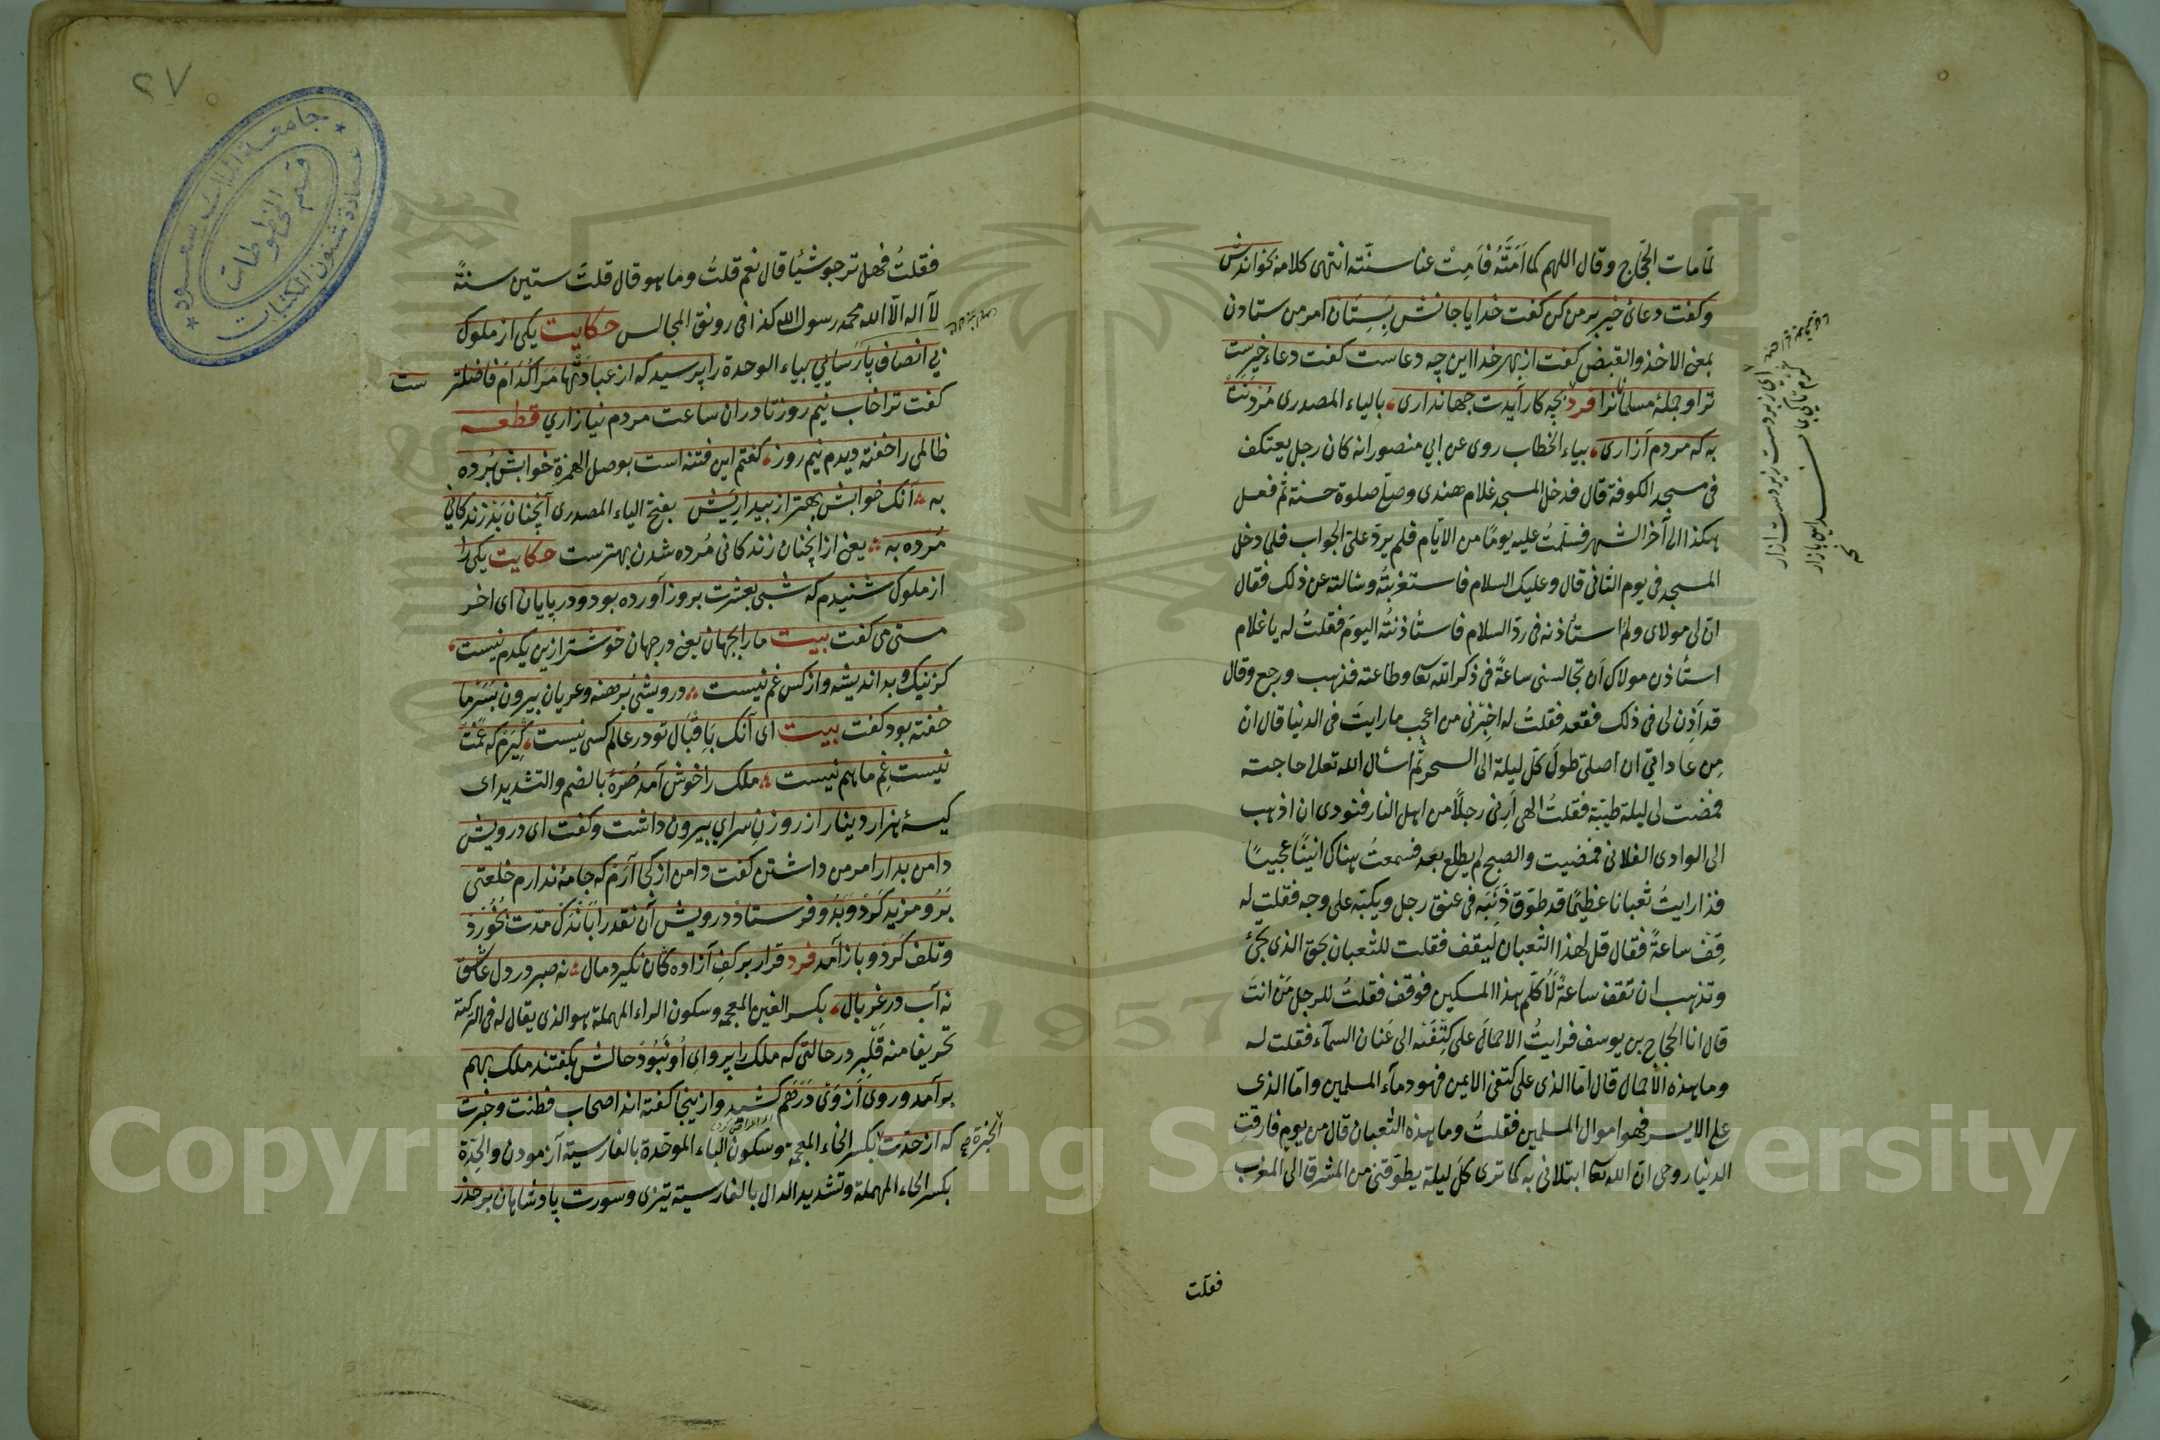 لما مات الحجّاج وقال اللهم كما اَمَتَّهُ فاَمِتْ عنا سنّته انتهى كلامه بخواندش
وكفت دعائ خير بر من كن كفت خدايا جانش بِسِتَان امر من ستادن
بمعنى الاخذ والقبض كفت از بهر خدا اين چه دعاست كفت دعاء خيرست
ترا وجملهٔ مسلمانرا فرد بچه كار آيدت جهاندارى بالياء المصدرى مُردنت
به كه مردم آزارى بياء الخطاب روى عن ابي منصور انه كان رجل يعتكف
فى مسجد الكوفة قال فدخل المسجد غلام هندى وصلّى صلوة حسنة ثم فعل
هكذا الى آخر الشهر فسلّمتُ عليه يومًا من الايّام فلم يردّ علىّ الجواب فلى دخل
المسجد فى يوم الثانى قال وعليك السلام فاستغربتُه وسالته عن ذلك فقال
انّ لى مولاى ولم استأذنه فى ردّ السلام فاستأذنتُه اليومَ فقلتُ له يا غلام
استأذن مولاك اَن تجالسنى ساعةً فى ذكر الله تعا وطاعته فذهب ورجع وقال
قد اَذِن لى فى ذلك فقعد فقلتُ له اخبِرْنى من اعجب ما رايتَ فى الدنيا قال ان
مِن عاداتي ان اصلى طولَ كلّ ليلة الى السحر ثم اسأل الله تعالى حاجته
فمضت لى ليلة طيّبة فقلتُ الهى اَرِنى رجلًا من اهل النار فنودى ان اذهب
الى الوادى الفلانى فمضيت والصبح لم يطلع بعد فسمعتُ هناك انينًا عجيبًا
فذا رايتُ ثعبانا عظيمًا قد طوّق ذَنَبَه فى عنق رجل ويكبّه على وجه فقلت له
قِفْ ساعةً فقال قل لهذا الثعبان ليقف فقلت للثعبان بحق الذى تجئ
وتذهب ان تقف ساعةً لاُكلّم هذا المسكين فوقف فقلتُ للرجل مَنْ انتَ
قال انا الحجاج بن يوسف فرايتُ الاحمالَ على كتِفَيْه الى عَنان السمآء فقلت له
وما هذه الاحمال قال امّا الذى على كتفى الايمن فهو دمآء المسلمين وامّا الذى
على الايسر فهو اموال المسلمين فقلتُ وما هذه الثعبان قال من يوم فارقت
الدنيا روحى انّ الله تعا ابتلانى به كما ترى كلّ ليلة يطوّقنى من المشرق الى المغرب
فقلت
٢٧
جامعة الملك سعود
عمادة شئون المكتبات
قسم المخطوطات
فقلتُ فهل ترجو شيئا قال نعم قلتُ وما هو قال قلتَ ستين سنةً
لآ اله الّا الله محمد رسول الله كذا فى رونق المجالس حكايت يكى از ملوك
بي انصاف پارسايى بياء الوحدة را پرسيد كه از عبادتها مرا كدام فاضلتر ست
كفت ترا خاب نيم روز تا در ان ساعت مردم نيازاري قطعه
ظالمى را خفته ديدم نيم روز كفتم اين فتنه است بوصل الهمزة خوابش بُرده
به آنك خوابش بهتر از بيداريش بفتح الياء المصدرى آنچنان بد زندكانى
مُرده به يعنى از انچنان زندكانى مُرده شدن بهترست حكايت يكى را
از ملوك شنيدم كه شبى بعشرت بروز آورده بود ودر پايان اى اخر
مستى مى كفت بيت مارا بجهان يعنى در جهان خوشتر ازين يكدم نيست
كز نيك وبد انديشه واز كس غم نيست درويشى برهنه وعريان بيرون بسرما
خفته بود كفت بيت اى آنك باقبال تو در عالم كسى نيست كيرم كه غمت
نيست غم ما هم نيست ملك را خوش آمد صُرّهٔ بالضم والتشديد اى
كيسهٔ هزار دينار از روزنِ سراي بيرون داشت وكفت اى درويش
دامن بدار امر من داشتن كفت دامن از كجا آرم كه جامه ندارم خلعتى
بَرُو مزيد كرد وبدُو فرستاد درويش آن نقد را باندك مدّت بخورد
وتلف كرد وباز آمد فرد قرار بر كف آزاده كان نكيرد مال نه صبر در دل عاشق
نه آب در غربال بكسر الغين المعجمة وسكون الراء المهملة هو الذى يقال له فى التركية
تحريفا منه قَلْبِر در حالتى كه ملك را پرواى اُو نبود حالش بكفتند ملك بهم
بر آمد وروى ازوى درهم كشيد وازينجا كفته اند اصحاب فطنت وخبرت
كه از حدّت بكسر الخاء المعجمة وسكون الباء الموحّدة بالفارسيّة آزمودن والحِدّة
بكسر الحاء المهملة وتشديد الدال بالفارسيّة تيزى وسورت پادشاهان بر حذر
1957
Copyright © King Saud University